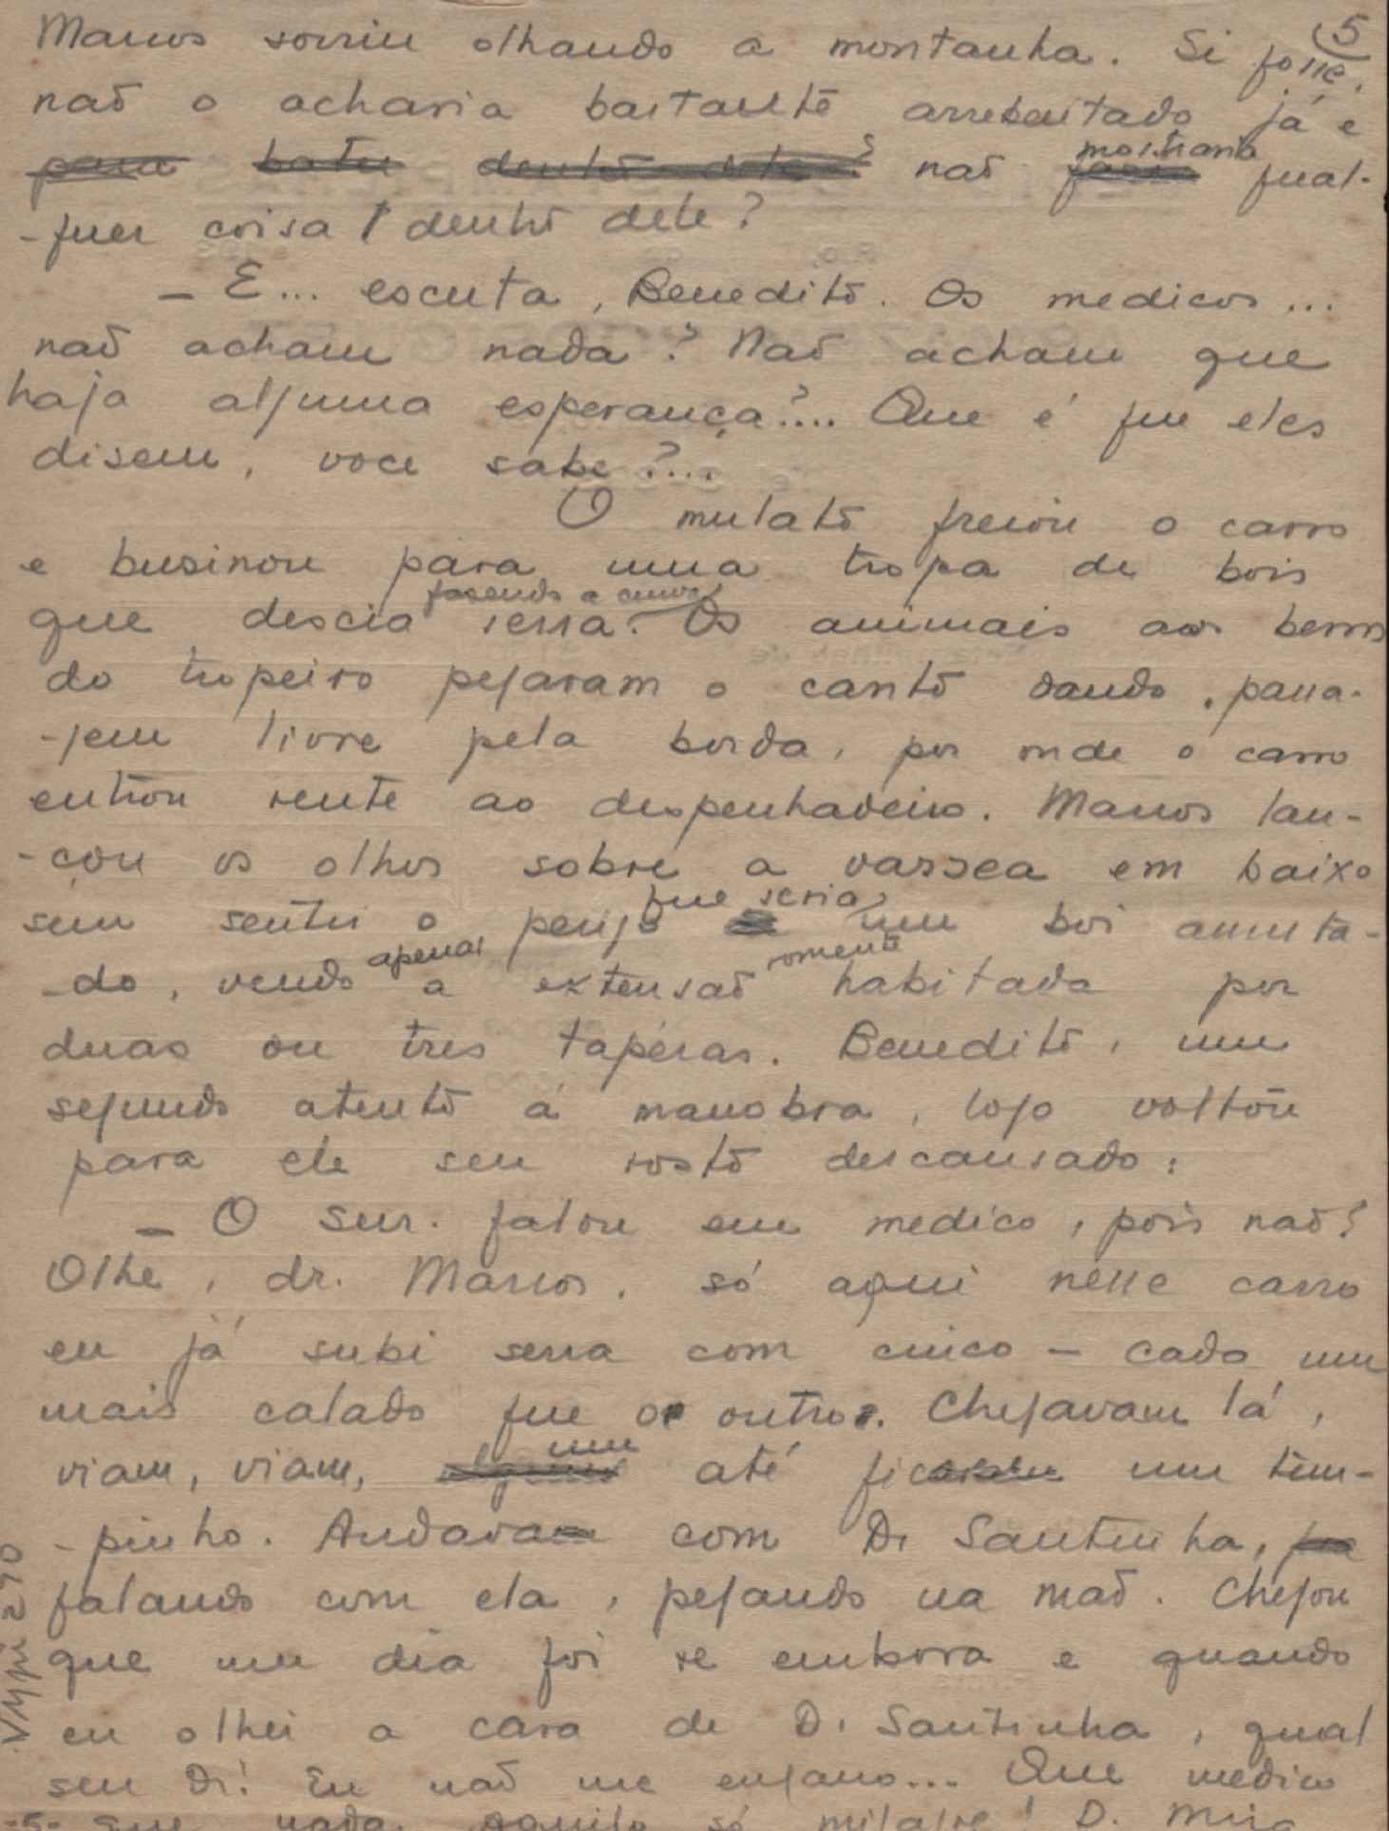 5
Marcos sorriu olhando a montanha. Si fosse,
naõ o acharia bastante arrebentado já e
para bater dentro dele? naõ mostraria qual-
-quer coisa dentro dele?
— E... escuta, Benedito. Os medicos...
naõ acham nada? Naõ acham que
haja alguma esperança?... Que é que eles
disem, voce sabe?...
O mulato freiou o carro
e businou para uma tropa de bois
que descia fasendo a curva serra. Os animais aos berros
do tropeiro pegaram o canto dando passa-
-gem livre pela borda, por onde o carro
entrou rente ao despenhadeiro. Marcos lan-
-çou os olhos sobre a varsea em baixo
sem sentir o perigo que seria um boi assusta-
-do, vendo apenas a extensaõ somente habitada por
duas ou tres taperas. Benedito, um
segundo atento á manobra, logo voltou
para ele seu rosto descansado:
— O snr. falou em medico, pois naõ?
Olhe, dr. Marcos, só aqui nesse carro
eu já subi serra com cinco — cada um
mais calado que o outro. Chegavam lá,
viam, viam, um até ficou um tem-
-pinho. Andava com D. Santinha,
falando com ela, pegando na maõ. Chegou
que um dia foi se embora e quando
eu olhei a cara de D. Santinha, qual
seu Dr! Eu naõ me engano... Que medico
que nada. Aquilo só milagre! D.
-5-